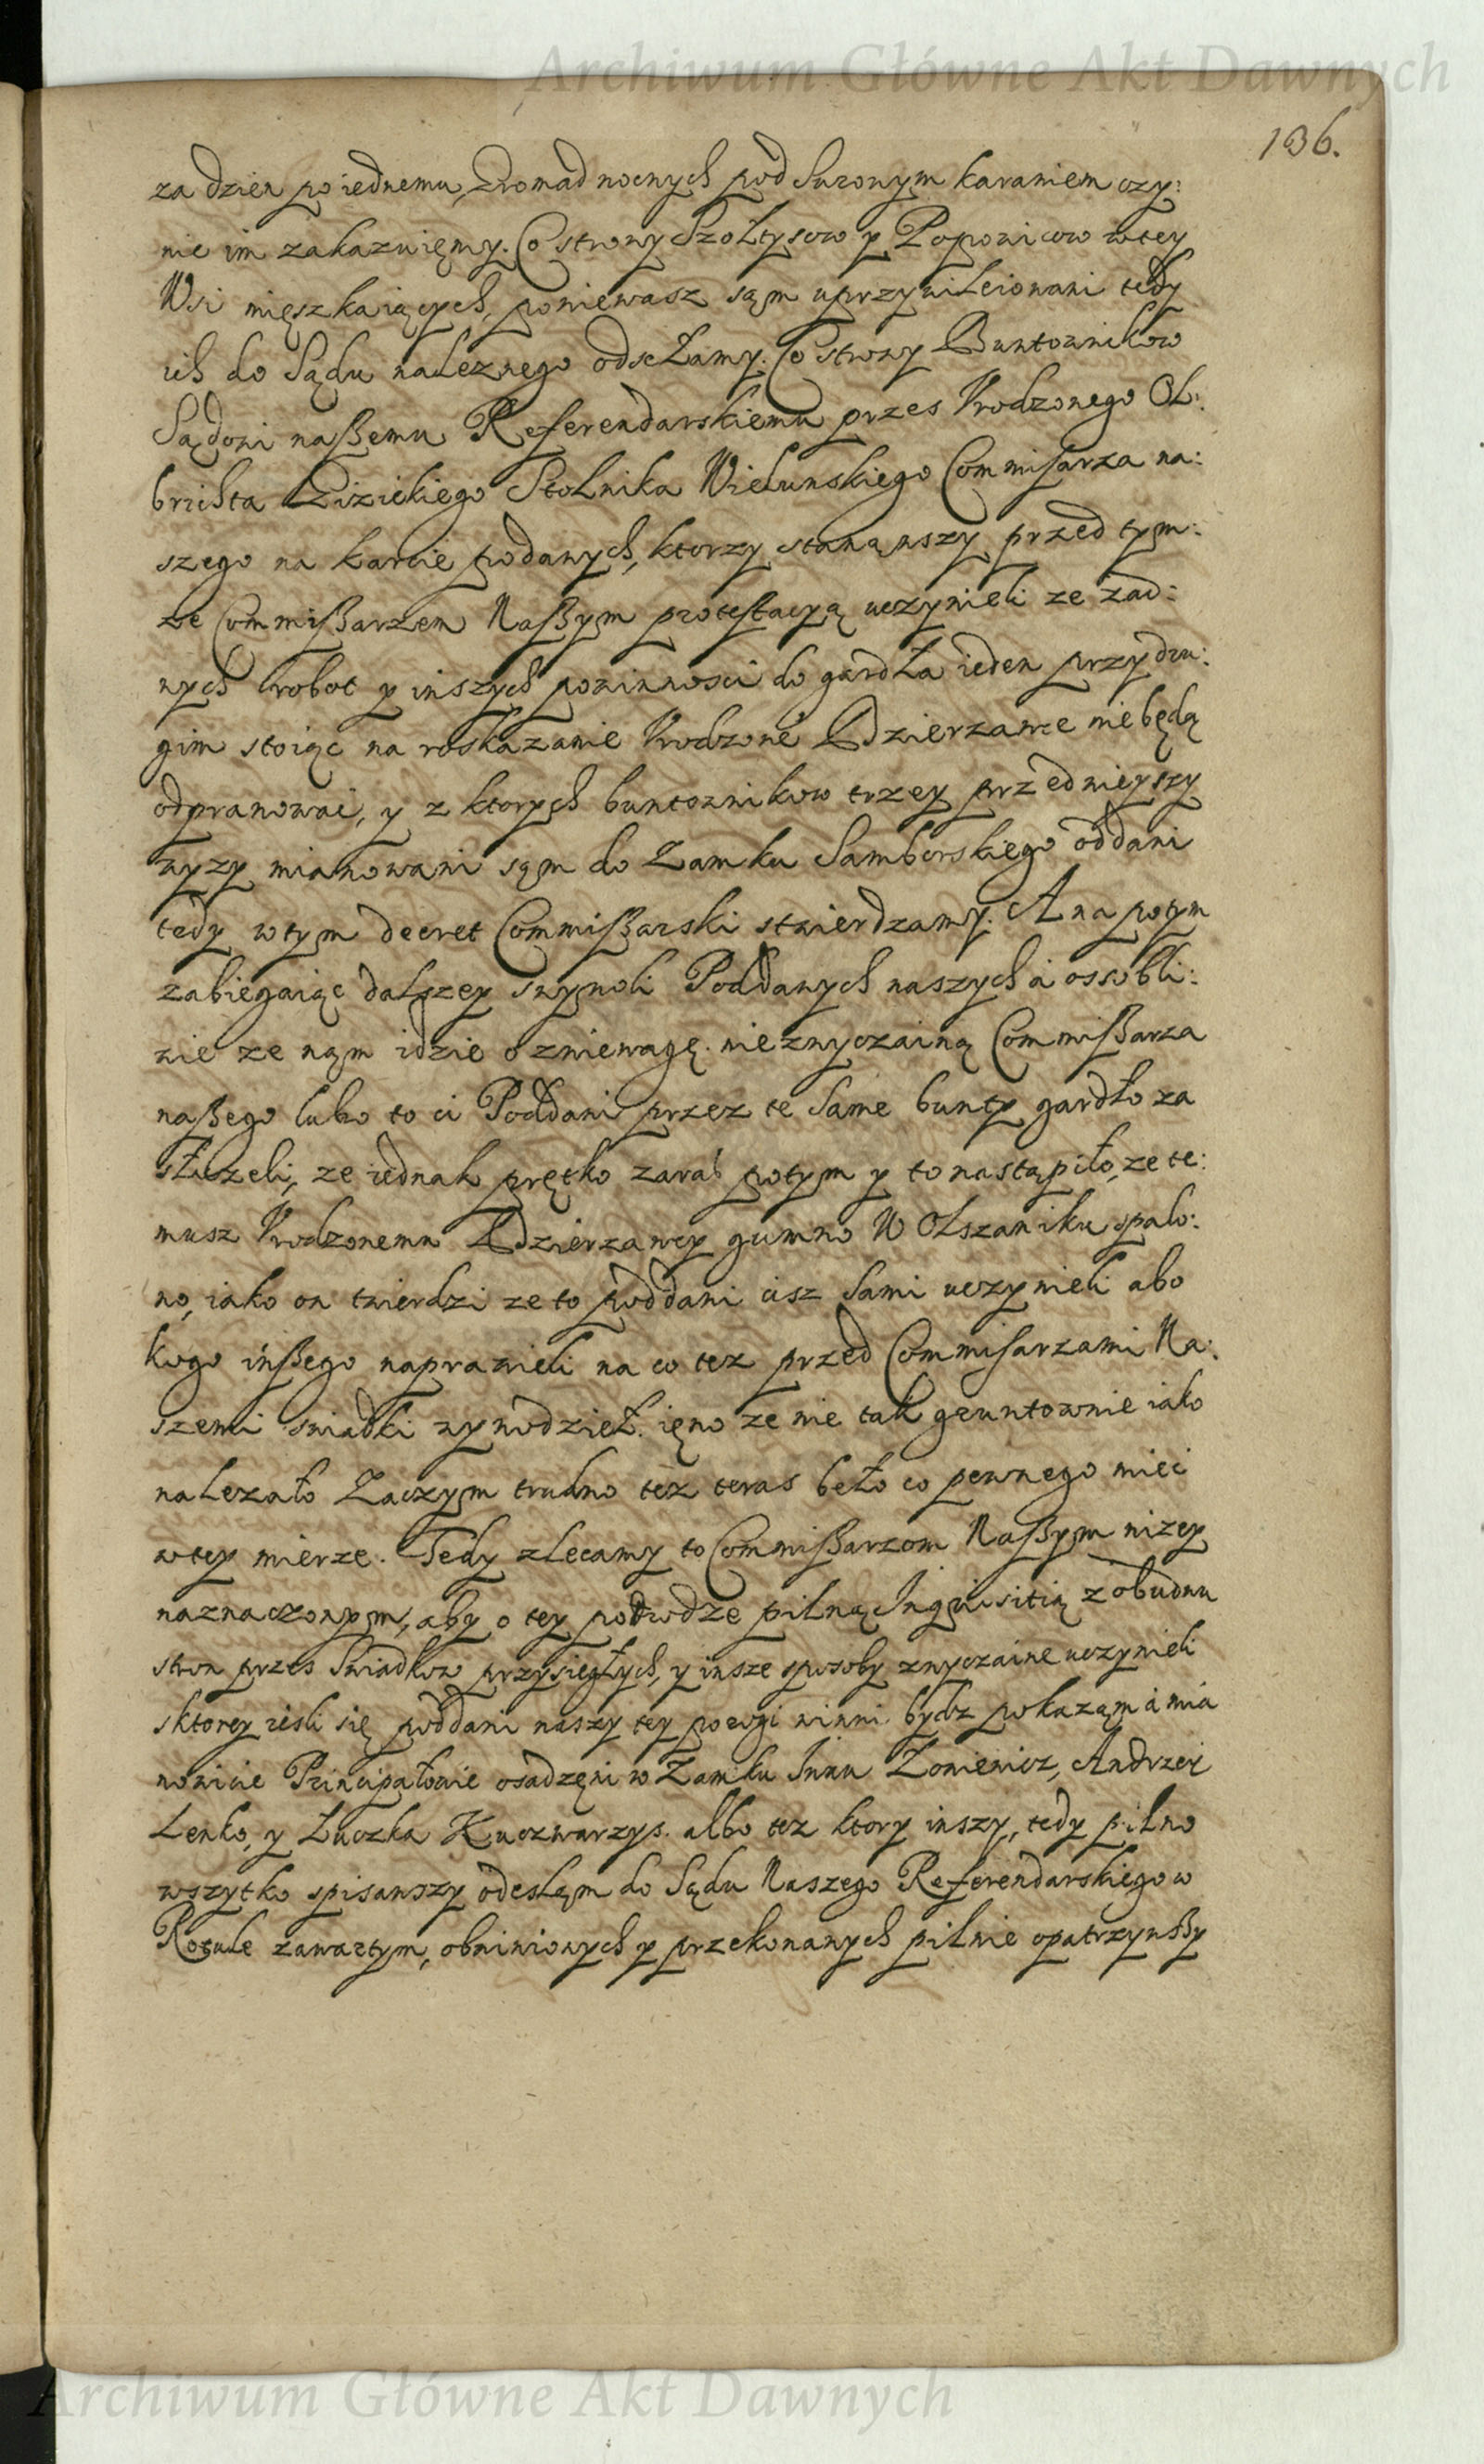 Archiwum Główne Akt Dawnych
136.
za dzien po iednemu, Gromad nocnych pod surowym karaniem czy:
nic im zakazuięmy. Co strony Szołtysow y Popowicow wtey
Wsi mięszkaiących, poniewasz sąm uprzywileiowani tedy
ich do Sądu naleznego odsełamy. Co strony Buntownikow
Sądowi naßemu Referendarskiemu przes Urodzonego Ol:
brichta Zizickiego Stolnika Wielunskiego Commisarza na:
szego na karcie podanych, ktorzy stanąwszy przed tym:
ze Commißarzem Naßym protestacyą uczynieli ze zad:
nych robot y inszych powinnosci do gardła ieden przy dru:
gim stoiąc na roskazanie Urodzone° Dzierzawce nie będą
odprawowac, y z ktorych buntownikow trzey przednieyszy
wyzy mianowani sąm do Zamku Samborskiego oddani
tedy wtym decret Commißarski stwierdzamy. A na potym
zabiegaiąc dalszey swywoli Poddanych naszych á ossobli:
wie ze nąm idzie o zniewagę niezwyczainą Commißarza
naßego lubo to ci Poddani przez te same bunty gardło za
słuzeli, ze iednak prętko zaras potym y to nastąpiło, ze te:
musz Urodzonemu Dzierzawcy gumno W Olszaniku spalo:
no, iako on twierdzi ze to poddani cisz sami uczynieli abo
kogo inßego naprawieli na co tez przed Commisarzami Na:
szemi swiadki wywodzieł. ięno ze nie tak gruntownie iako
nalezało Zaczym trudno tez teras beło co pewnego miec
wtey mierze. Tedy zlecamy to Commißarzom Naßym nizey
naznaczonym, aby o tey powodze pilną Inquisitią z obudwu
stron przes swiadkow przysięgłych, y insze sposoby zwyczaine uczynieli
sktorey iesli się poddani naszy tey pozogi winni bydz pokaząm á mia
nowicie Principałowie osadzęni w Zamku Iwan Zoniewicz, Andrzei
Lenko, y Łuczka Kuczwarzys. albo tez ktory inszy, tedy pilno
wszytko spisawszy odesląm do Sądu Naszego Referendarskiego w
Rotule zawartym, obwinionych y przekonanych pilnie opatrzywßy
Archiwum Główne Akt Dawnych